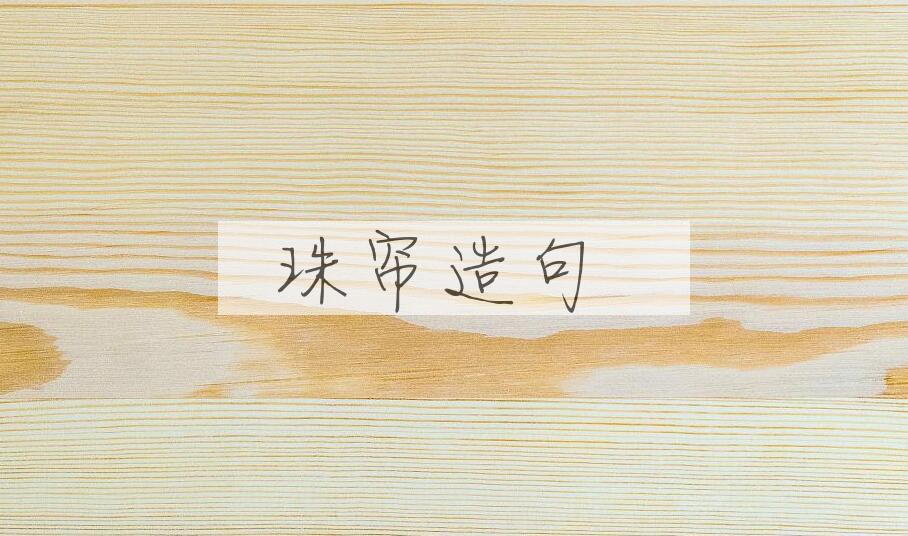 珠帘造句